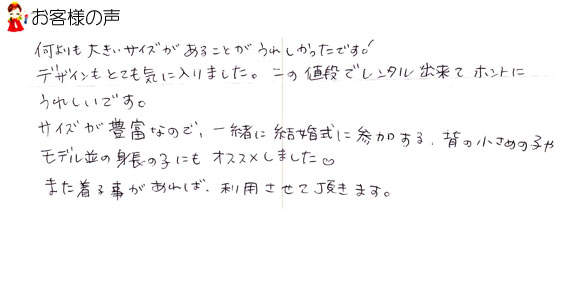 お客様の声
何よりも大きいサイズがあることがうれしかったです!
デザインもとても気に入りました。この値段でレンタル出来てホントに
うれしいです。
サイズが豊富なので、一緒に結婚式に参加する、背の小さめの子や
モデル並の身長の子にもオススメしました
また着る事があれば、利用させて頂きます。